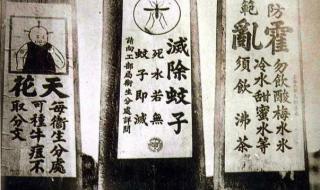 防範
霍亂
勿飲酸梅水氷
冷水甜蜜水等
須飲沸茶
滅除蚊子
死水若無
蚊子即滅
請向工部局衛生分處詳問
天花
每衛生分處
可種牛痘不
取分文